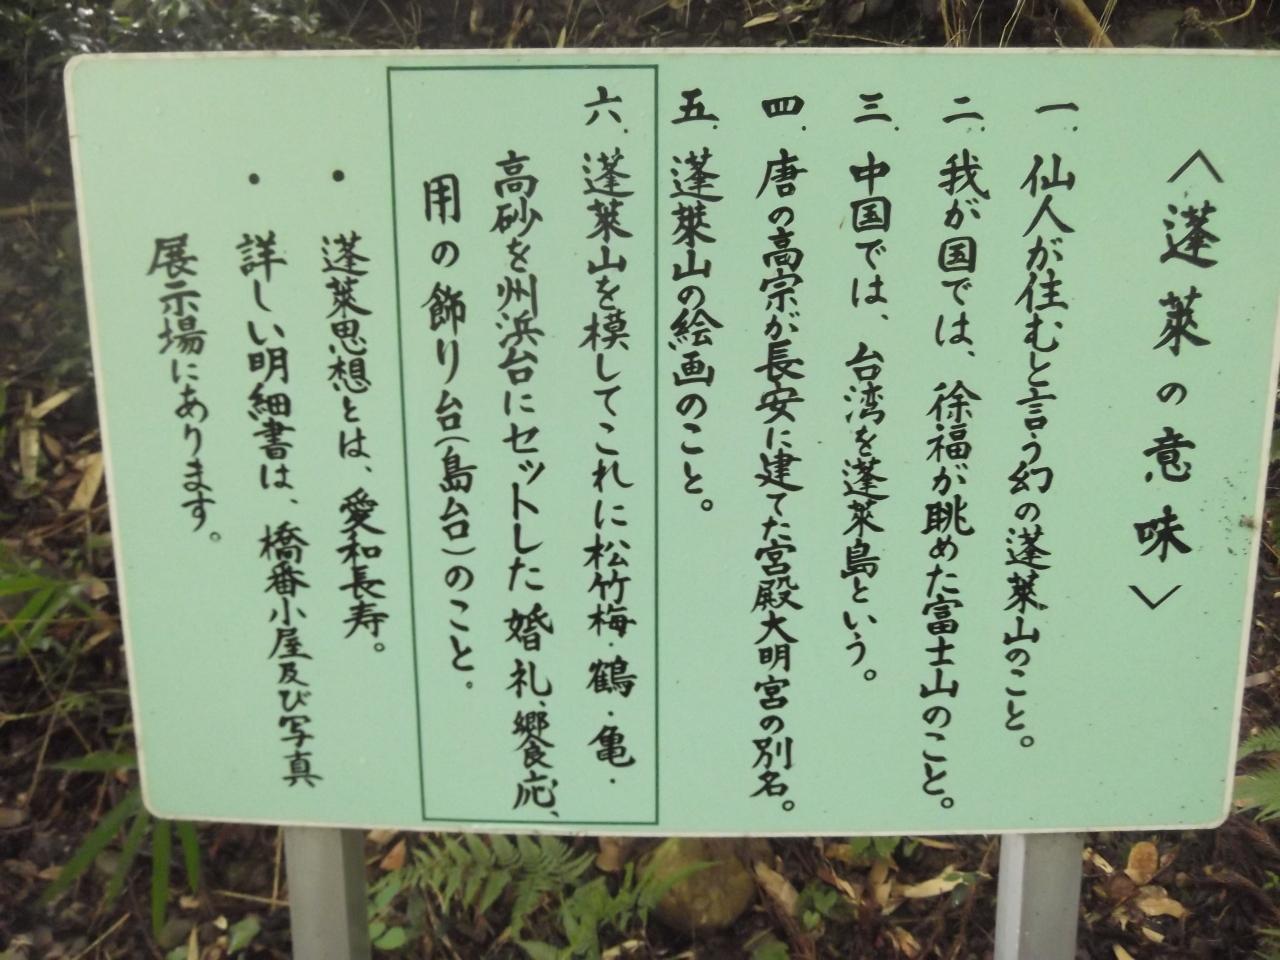 〈蓬莱の意味〉
一. 仙人が住むと言う幻の蓬莱山のこと。
二. 我が国では、徐福が眺めた富士山のこと。
三. 中国では、台湾を蓬莱島という。
四. 唐の高宗が長安に建てた宮殿大明宮の別名。
五. 蓬莱山の絵画のこと。
六. 蓬莱山を模してこれに松竹梅・鶴・亀・
高砂を州浜台にセットした婚礼、饗応、
用の飾り台(島台)のこと。
• 蓬莱思想とは、愛和長寿。
• 詳しい明細書は、橋番小屋及び写真
展示場にあります。